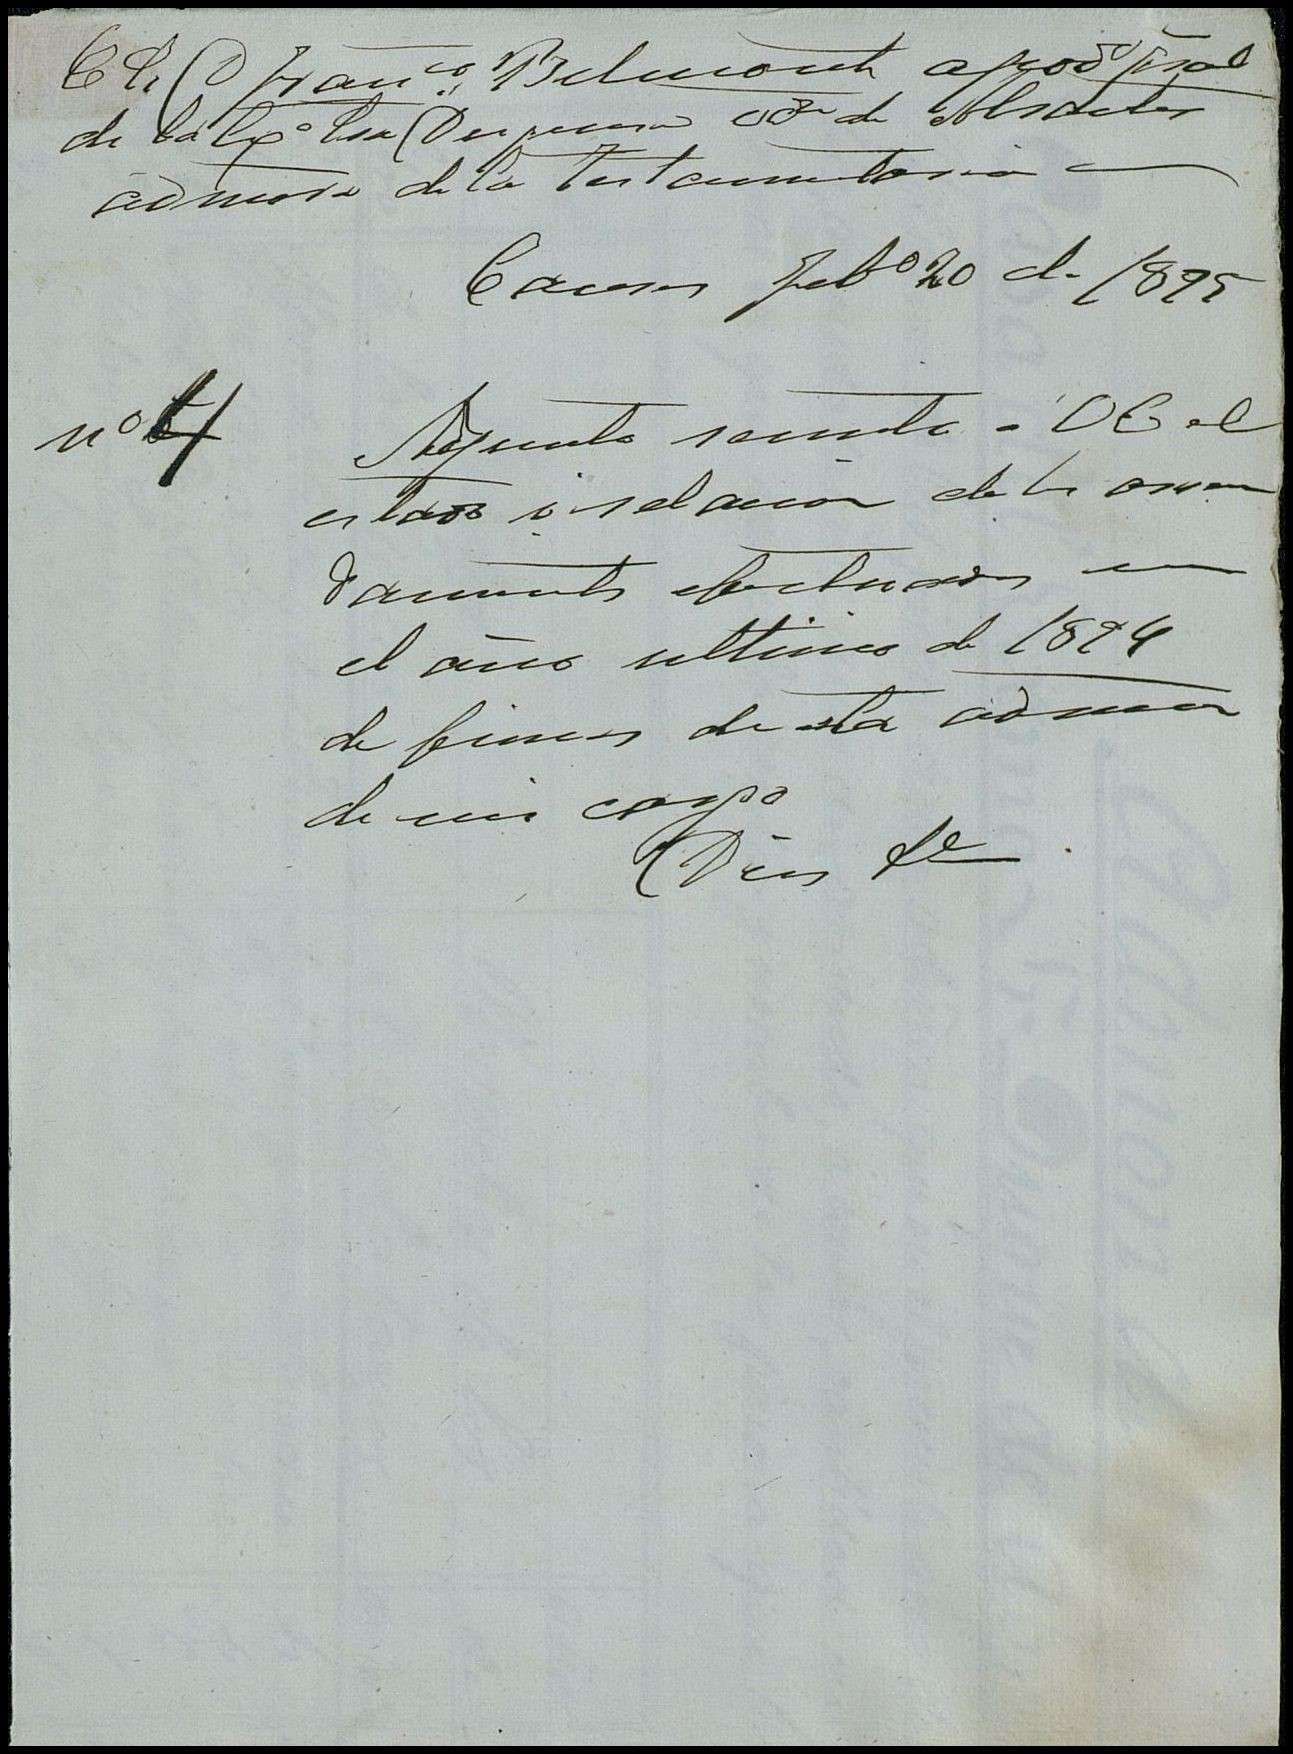 D Franco Belmonte apodo gral
de la Exa Sra Duquesa vda de Abrantes
admora de la Testamentaria
Caceres Febo 20 de 1895
no 4
Adjunto remito a V E el
estado ó relacion de los arren
damientos efectuados en
el año ultimo de 1894
de fincas de esta admon
de mi cargo
Dios &e